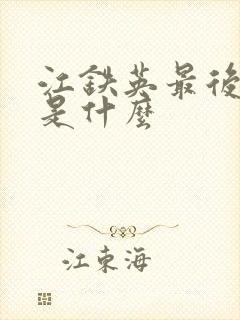 江鉄英最後
是什麼
江東海